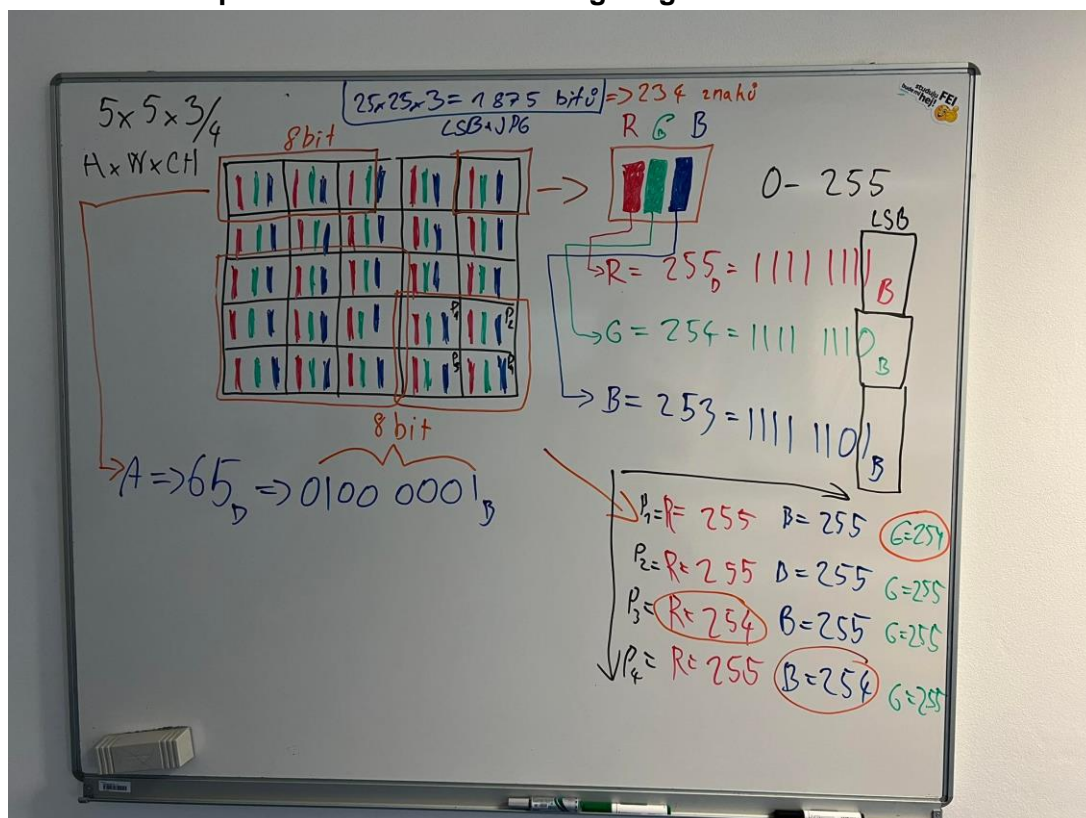 5x5x3/4
HxWxCH
25x25x3 = 1875 bitů => 234 znaků
LSB JPG
8bit
R G B
0 - 255
LSB
R = 255D = 1111 1111B
G = 254 = 1111 1110B
B = 253 = 1111 1101B
P1 P2
P3 P4
8bit
A => 65D => 0100 0001B
P1= R= 255 B= 255 G=254
P2= R= 255 B= 255 G=255
P3= R= 254 B= 255 G=255
P4= R= 255 B= 254 G=255
studuj FEI
hej!